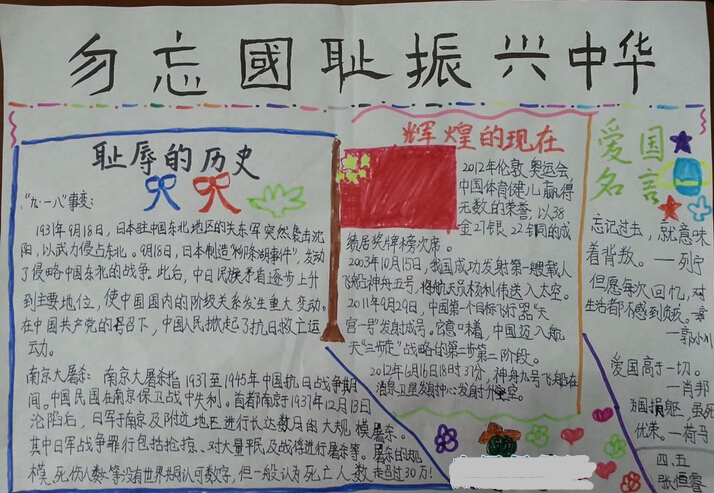 勿忘國耻振兴中华
耻辱的历史
"九·一八"事变:
1931年9月18日,日本驻中国东北地区的关东军突然袭击沈
阳,以武力侵占东北。9月18日,日本制造"柳条湖事件",发动
了侵略中国东北的战争。此后,中日民族矛盾逐步上升
到主要地位,使中国国内的阶级关系发生重大变动。
在中国共产党的号召下,中国人民掀起了抗日救亡运
动。
南京大屠杀:南京大屠杀指1937至1945年中国抗日战争期
间。中国民国在南京保卫战中失利。首都南京于1937年12月13日
沦陷后,日军于南京及附近地区进行长达数月的大规模屠杀。
其中日军战争罪行包括抢掠、对大量平民及战俘进行屠杀等。屠杀的规
模、死伤人数等没有世界共同认可数字,但一般认为死亡人数
超过30万!
辉煌的现在
2012年伦敦奥运会,
中国体育健儿赢得
无数的荣誉,以38
金27银22铜的成
绩居奖牌榜次席。
2003年10月15日,我国成功发射第一艘载人
飞船神舟五号,将航天员杨利伟送入太空。
2011年9月29日,中国第一个目标飞行器"天
宫一号"发射成号。它意味着,中国迈入航
天"三步走"战略的第二步第二阶段。
2012年6月16日18时37分,神舟九号飞船在
酒泉卫星发射中心发射升空。
爱国
名言
忘记过去,就意味
着背叛。—列宁
但愿每次回忆,对
生活都不感到负疚。
—郭小川
爱国高于一切。
—肖邦
为国捐躯,虽死
犹荣。—荷马
四、五
张恒睿